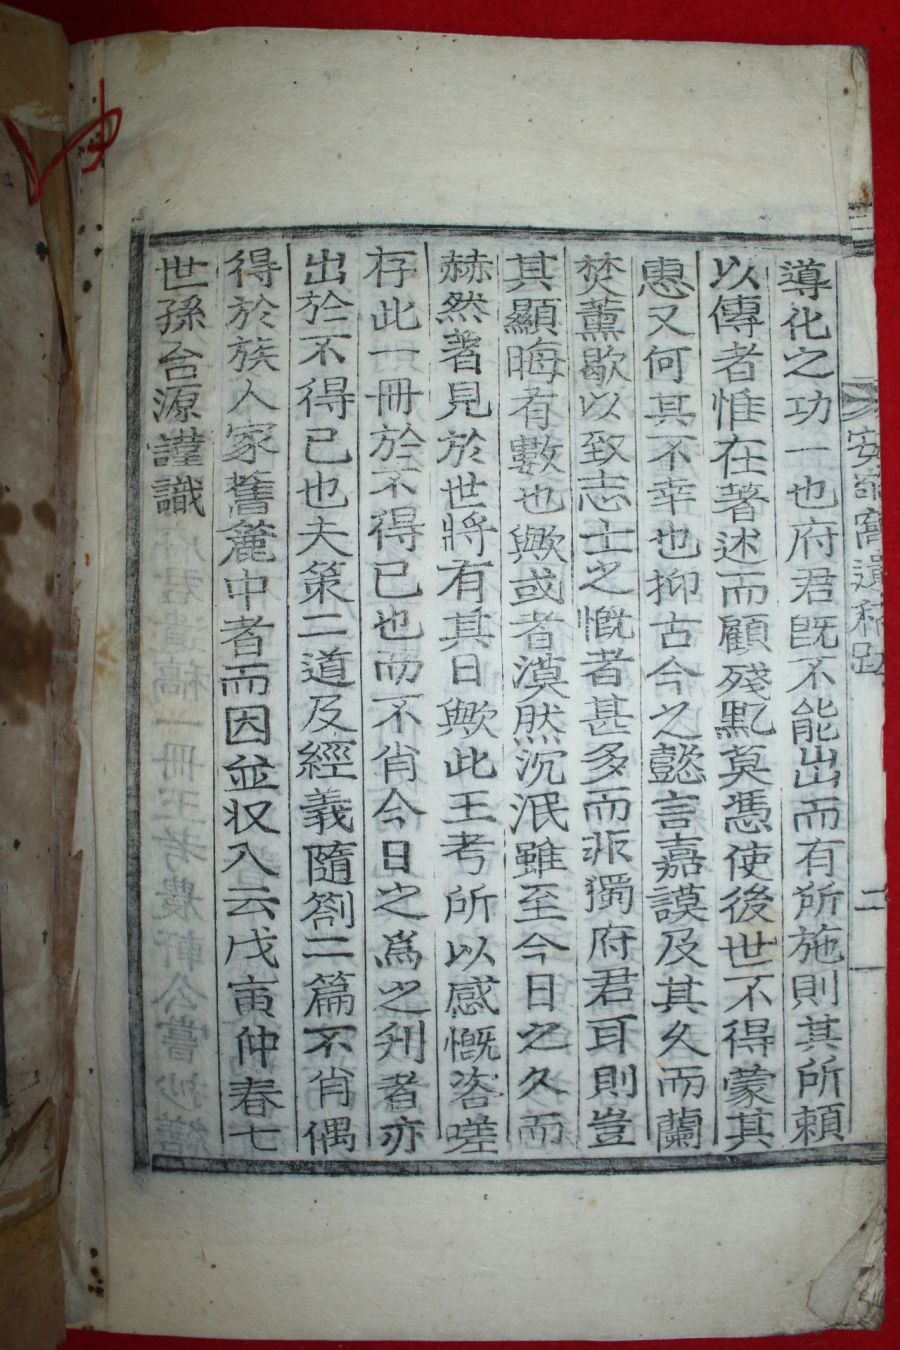 導化之功一也府君旣不能出而有所施則其所賴
以傳者惟在著述而顧殘㸃莫憑使後世不得蒙其
惠又何其不幸也抑古今之懿言嘉謨及其久而蘭
焚薰歇以致志士之慨者甚多而非獨府君耳則豈
其顯晦有數也歟或者漠然沉泯雖至今日之久而
赫然著見於世將有其日歟此王考所以感慨咨嗟
存此一冊於不得已也而不肖今日之爲之刋者亦
出於不得已也夫策二道及經義隨劄二篇不肖偶
得於族人家舊簏中者而因並収入云戊寅仲春七
世孫台源謹識
窩遺稿跋
二